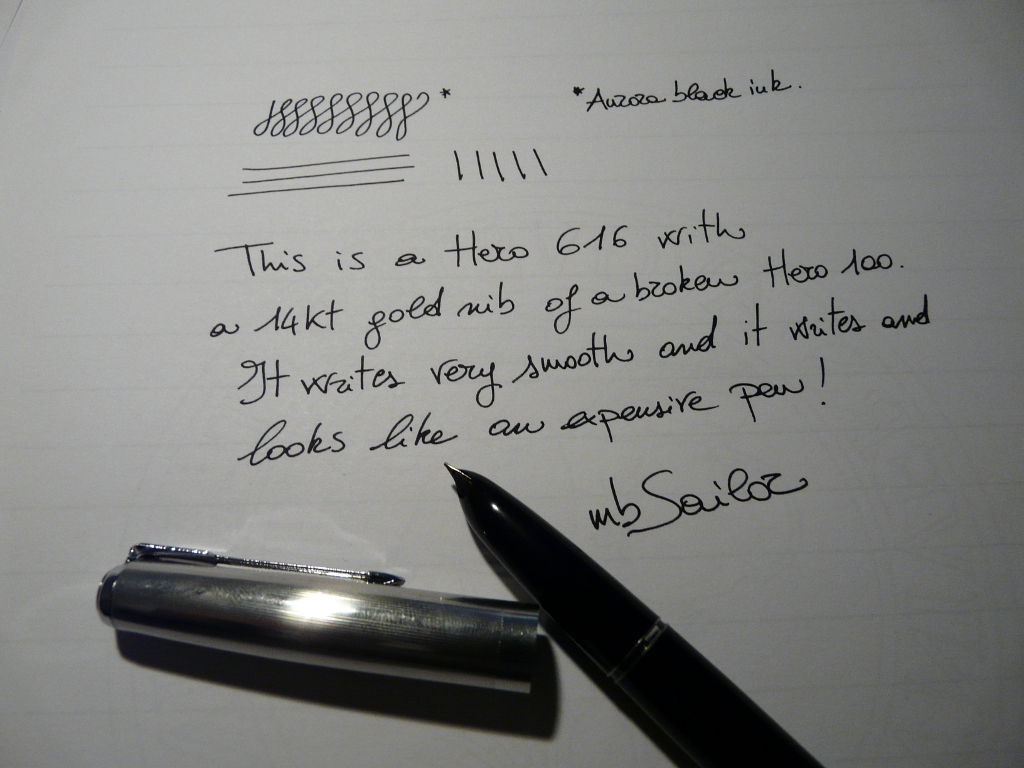 * *Aurora black ink.
This is a Hero 616 with
a 14kt gold nib of a broken Hero 100.
It writes very smooth and it writes and
looks like an expensive pen!
mbSailor